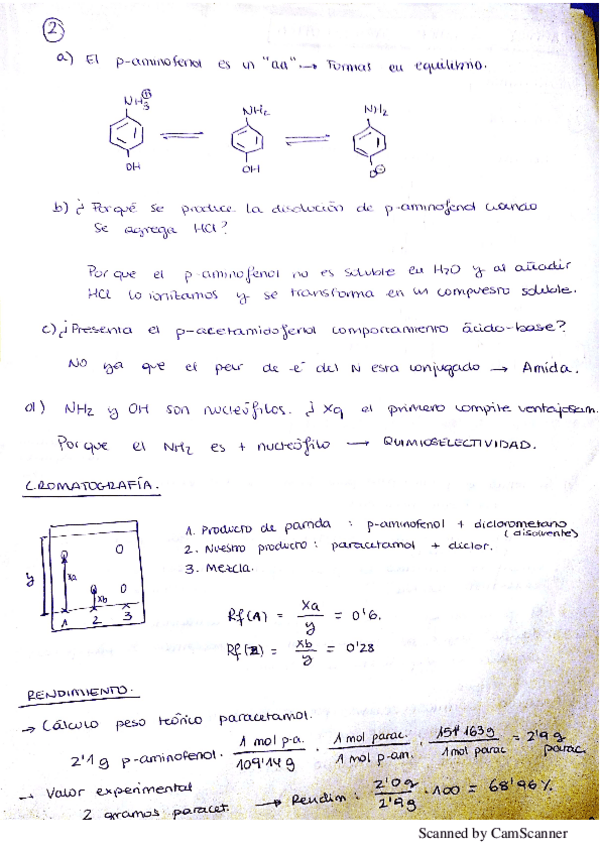 2
a) El p-aminofenol es un "aa" → Formas en equilibrio.
NH3 ⊕ NH2 NH2
OH OH O⊖
b) ¿Porqué se produce la disolución de p-aminofenol cuando
se agrega HCl?
Por que el p-aminofenol no es soluble en H2O y al añadir
HCl lo ionizamos y se transforma en un compuesto soluble.
c) ¿Presenta el p-acetamidofenol comportamiento ácido-base?
No ya que el par de -e⁻ del N esta conjugado → Amida.
d) NH2 y OH son nucleófilos. ¿Xq el primero compite ventajosam.
Porque el NH2 es + nucleófilo → QUIMIOSELECTIVIDAD.
CROMATOGRAFÍA.
1. Producto de partida : p-aminofenol + diclorometano
(disolvente)
2. Nuestro producto : paracetamol + diclor.
3. Mezcla.
y xa xb
1 2 3
Rf(A) = xa / y = 0'6.
Rf(B) = xb / y = 0'28
RENDIMIENTO.
→ Cálculo peso teórico paracetamol.
2'1 g p-aminofenol · 1 mol p-a. / 109'14 g · 1 mol parac. / 1 mol p-am. · 151'163 g / 1 mol parac = 2'9 g parac.
→ Valor experimental
2 gramos paracet. → Rendim : 2'0 g / 2'9 g · 100 = 68'96 %.
Scanned by CamScanner